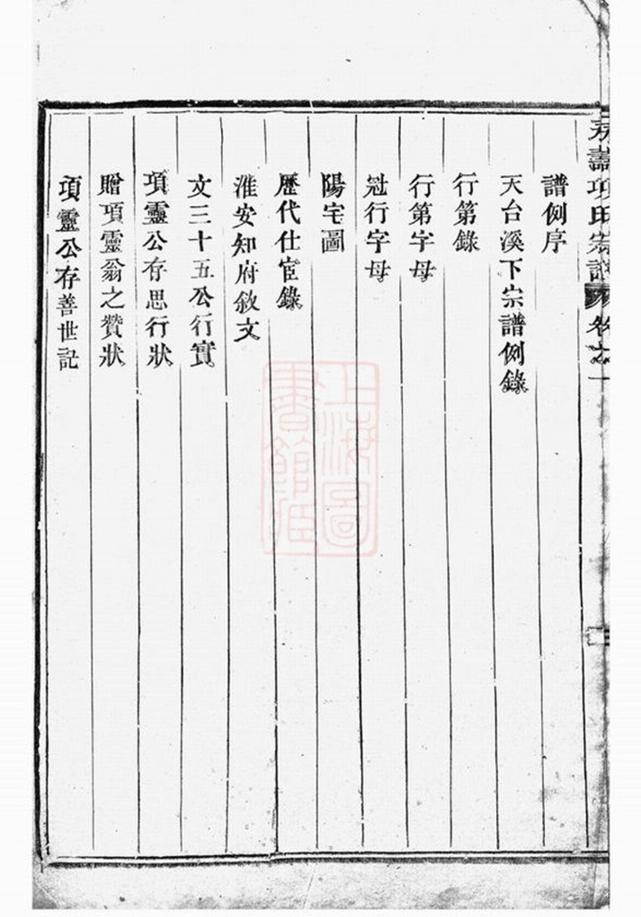 項氏宗譜
譜例序
天台溪下宗譜例錄
行第錄
行第字母
冠行字母
陽宅圖
歷代仕宦錄
淮安知府敘文
文三十五公行實
項靈公存思行狀
贈項靈翁之贊狀
項靈公存善世記
上海圖
書館